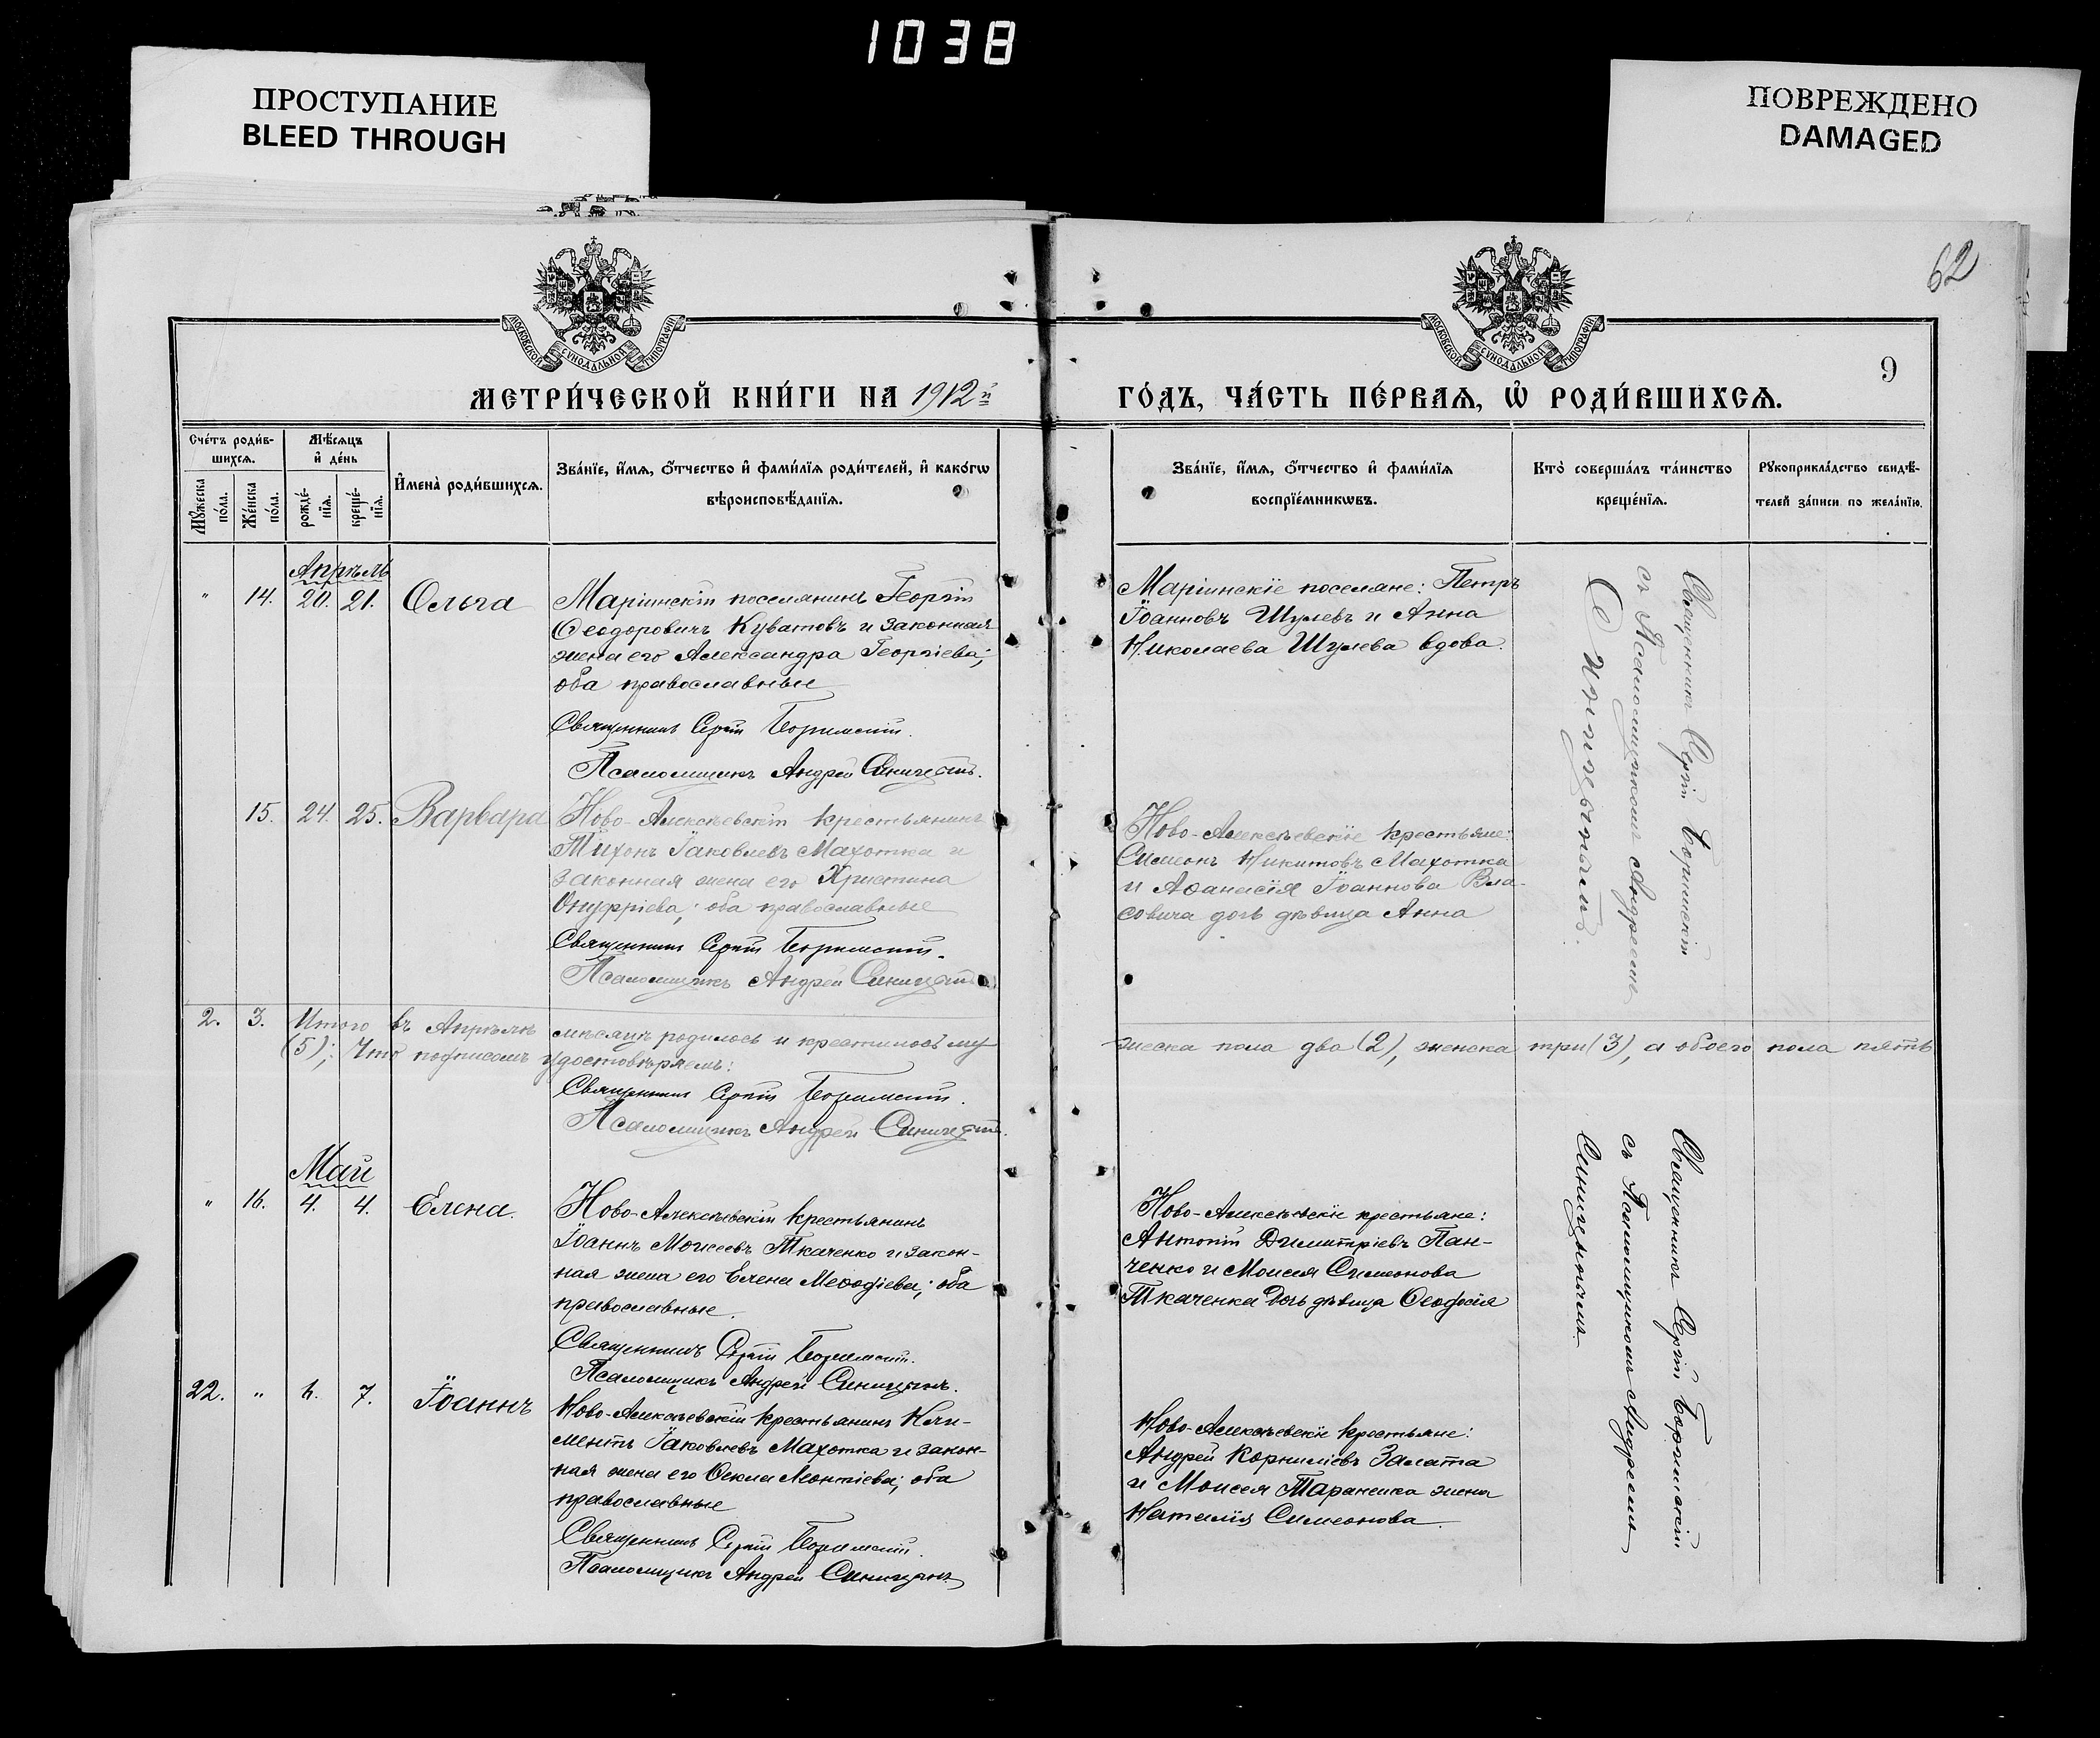 1038
ПРОСТУПАНИЕ
BLEED THROUGH
ПОВРЕЖДЕНО
DAMAGED
62
МОСКОВСКОЙ СѴНОДАЛЬНОЙ ТИПОГРАФІИ
МОСКОВСКОЙ СѴНОДАЛЬНОЙ ТИПОГРАФІИ
9
МЕТРИ́ЧЕСКОЙ КНИ́ГИ НА 1912й
ГО́ДЪ, ЧА́СТЬ ПЕ́РВАѦ, Ѡ҆ РОДИ́ВШИХСѦ.
Сче́тъ роди́в-
шихсѧ.
Мꙋ́жеска по́ла.
Же́нска по́ла.
Мѣ́сѧцъ
и҆ де́нь
рожде́-
нїѧ.
креще́-
нїѧ.
И҆мена̀ роди́вшихсѧ.
Зва́нїе, и҆́мѧ, ѻ҆́тчество и҆ фами́лїѧ роди́телей, и҆ како́гѡ
вѣроисповѣ́данїѧ.
Зва́нїе, и҆́мѧ, ѻ҆́тчество и҆ фами́лїѧ
воспрїе́мникѡвъ.
Кто̀ соверша́лъ та́инство
креще́нїѧ.
Рꙋкоприкла́дство свидѣ́-
телей за́писи по жела́нїю.
Апрѣль
" 14. 20. 21. Ольга
Маріинскій поселянинъ Георгій
Ѳеодоровичъ Куватовъ и законная
жена его Александра Георгіева;
оба православные
Священникъ Сергій
Псаломщикъ Андрей Синицынъ.
Маріинскіе поселяне: Петръ
Іоанновъ Шулевъ и Анна
Николаева Шулева вдова.
Священникъ Сергій
съ Псаломщикомъ Андреемъ
Синицынымъ.
15. 24. 25. Варвара
Ново-Алексѣевскій крестьянинъ
Тихонъ Іаковлевъ Махотка и
законная жена его Христина
Онуфріева; оба православные
Священникъ Сергій
Псаломщикъ Андрей Синицынъ
Ново-Алексѣевскіе крестьяне:
Симеонъ Никитовъ Махотка
и Аѳанасія Іоаннова Вла-
совича дочь дѣвица Анна
2. 3. Итого въ Апрѣлѣ мѣсяцѣ родилось и крестилось му
жеска пола два (2), женска три (3), а обоего пола пять
(5); Что подписомъ удостовѣряемъ:
Священникъ Сергій
Псаломщикъ Андрей Синицынъ.
Май
" 16. 4. 4. Елена.
Ново-Алексѣевскій крестьянинъ
Іоаннъ Моисеевъ Ткаченко и закон-
ная жена его Елена Меѳодіева; оба
православные.
Священникъ Сергій
Псаломщикъ Андрей Синицынъ.
Ново-Алексѣевскіе крестьяне:
Антоній Димитріевъ Пан-
ченко и Моисея Симеонова
Ткаченка дочь дѣвица Ѳеодосія
Священникъ Сергій
съ Псаломщикомъ Андреемъ
Синицынымъ.
22. " 6. 7. Іоаннъ
Ново-Алексѣевскій крестьянинъ Кли-
ментъ Іаковлевъ Махотка и закон-
ная жена его Ѳекла Леонтіева; оба
православные
Священникъ Сергій
Псаломщикъ Андрей Синицынъ
Ново-Алексѣевскіе крестьяне:
Андрей Корниліевъ Залата
и Моисея Таранишка жена
Наталія Симеонова.